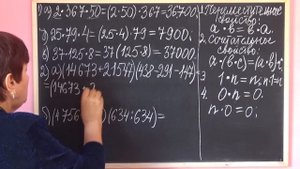 1) а) 2·367·50=(2·50)·367=36700.
б) 25·79·4=(25·4)·79=7900;
в) 37·125·8=37(125·8)=37000.
2) а) (14673+21547)(438-291-147)=
=(14673
б) (4756 (634:634)=
свойство:
a·b=b·a.
2. Сочетательное
свойство:
a·(b·c)=(a·b)·c
3. 1·n=n;n·1=n
4. 0·n=0.
n·0=0;